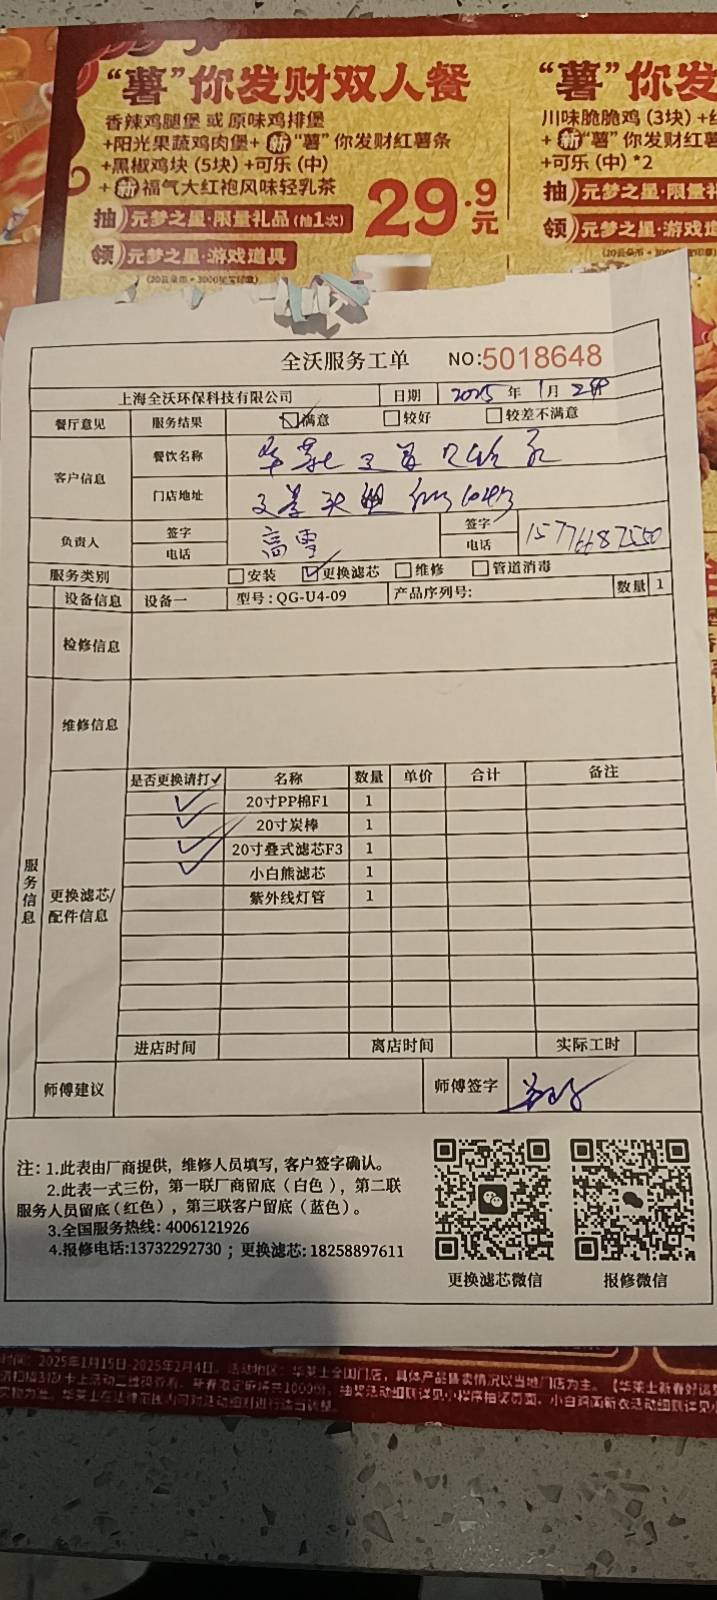 “薯”你发财双人餐
香辣鸡腿堡 或 原味鸡排堡
+阳光果蔬鸡肉堡+ 新 “薯” 你发财红薯条
+黑椒鸡块 (5块) +可乐 (中)
+ 新 福气大红袍风味轻乳茶
29.9元
抽 元梦之星·限量礼品 (抽1次)
领 元梦之星·游戏道具
“薯”你发
川味脆脆鸡 (3块) +
+ 新 “薯” 你发财红薯
+可乐 (中) *2
抽 元梦之星·限量礼
领 元梦之星·游戏道
全沃服务工单 NO:5018648
上海全沃环保科技有限公司 日期 2025 年 1 月
餐厅意见 服务结果 满意 较好 较差不满意
客户信息 餐饮名称
门店地址
负责人 签字 电话 高雪 签字 电话 15776687550
服务类别 安装 更换滤芯 维修 管道消毒
设备信息 设备一 型号: QG-U4-09 产品序列号: 数量 1
检修信息
维修信息
服务信息
更换滤芯/配件信息
是否更换请打✓ 名称 数量 单价 合计 备注
✓ 20寸PP棉F1 1
✓ 20寸炭棒 1
✓ 20寸叠式滤芯F3 1
✓ 小白熊滤芯 1
紫外线灯管 1
进店时间 离店时间 实际工时
师傅建议 师傅签字
注: 1.此表由厂商提供, 维修人员填写, 客户签字确认。
2.此表一式三份, 第一联厂商留底 (白色), 第二联
服务人员留底 (红色), 第三联客户留底 (蓝色)。
3.全国服务热线: 4006121926
4.报修电话:13732292730 ; 更换滤芯: 18258897611
更换滤芯微信 报修微信
时间: 2025年1月15日-2025年2月4日。活动地区: 华莱士全国门店, 具体产品售卖情况以当地门店为主。